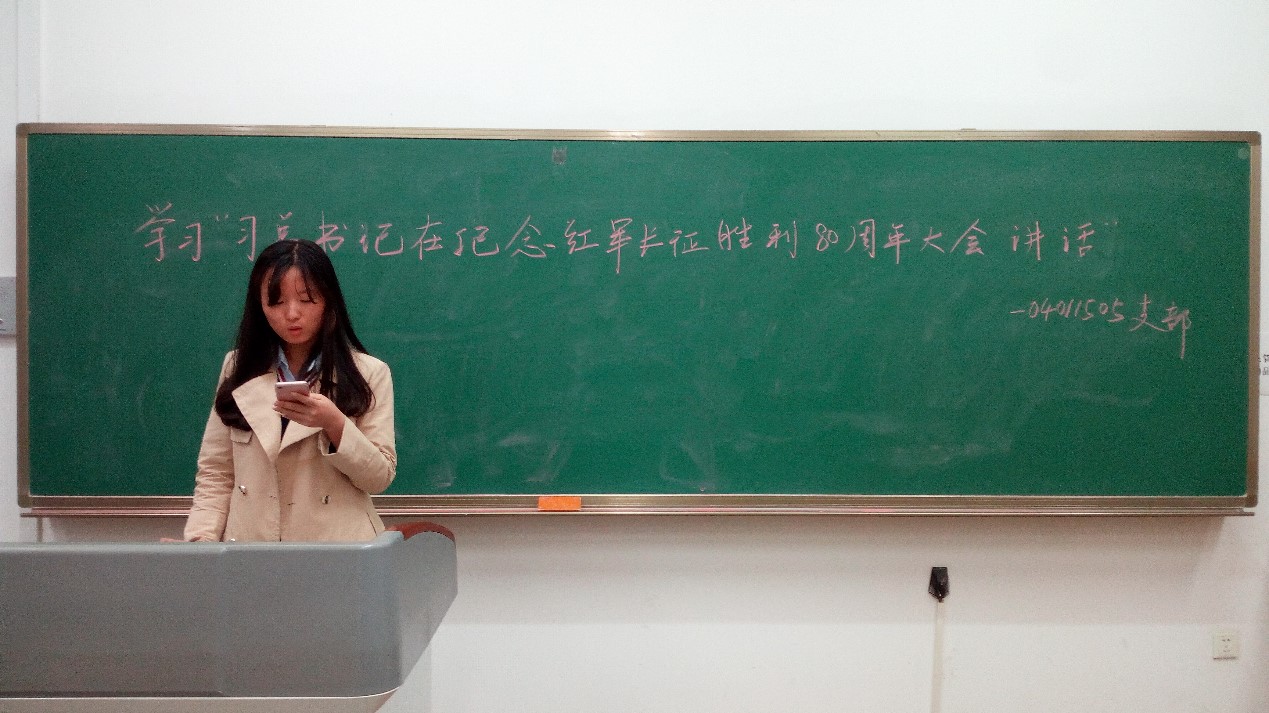 学习“习总书记在纪念红军长征胜利80周年大会讲话”
-04011505支部